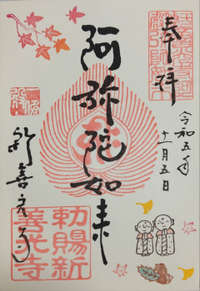 奉拝
令和五年
十一月五日
阿弥陀如来
新善光寺
勅賜新
善光寺